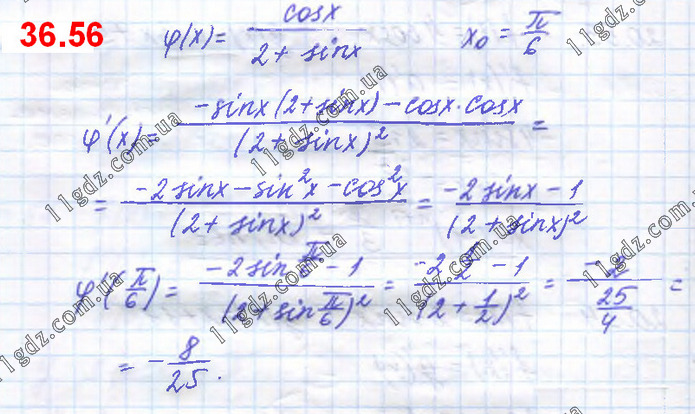 36.56
φ(x) = cosx / (2 + sinx)    x₀ = π/6
φ'(x) = (-sinx(2+sinx) - cosx·cosx) / (2 + sinx)² =
= (-2sinx - sin²x - cos²x) / (2 + sinx)² = (-2sinx - 1) / (2 + sinx)²
φ'(π/6) = (-2sin π/6 - 1) / (2 + sin π/6)² = (-2·1/2 - 1) / (2 + 1/2)² = -2 / (25/4) =
= -8/25.
11gdz.com.ua
11gdz.com.ua
11gdz.com.ua
11gdz.com.ua
11gdz.com.ua
11gdz.com.ua